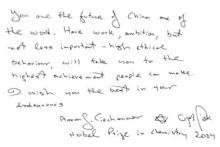 You are the future of China and of
the world. Hard work, ambition, but
not less important - high ethical
behaviour, will take you to the
highest achievement people can make.
I wish you the best in your
endeavours
Aaron J. Ciechanover
Nobel Prize in Chemistry 2004